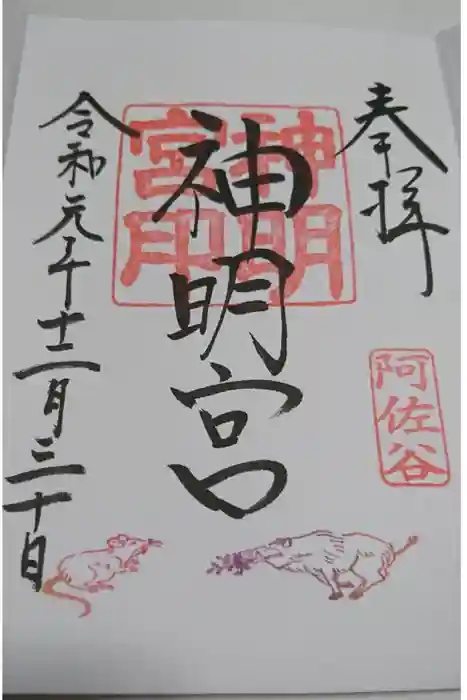 奉拝
阿佐谷
神明宮
神明
宮印
令和元年十二月三十日